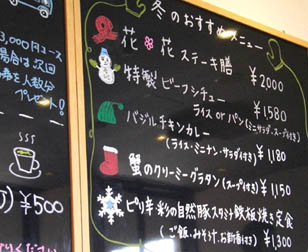 冬のおすすめメニュー
花花ステーキ膳
¥2000
特製ビーフシチュー
ライス or パン(ミニサラダ、スープ付き)
¥1580
バジルチキンカレー
(ライス・ミニナン・サラダ付き) ¥1180
蟹のクリーミーグラタン(スープ付き) ¥1150
ピリ辛彩の自然豚スタミナ鉄板焼き定食
(ご飯、みそ汁、お新香付き) ¥1,300
3,000円コース
場合は次回
を人数分
プレゼント!
¥500
ください